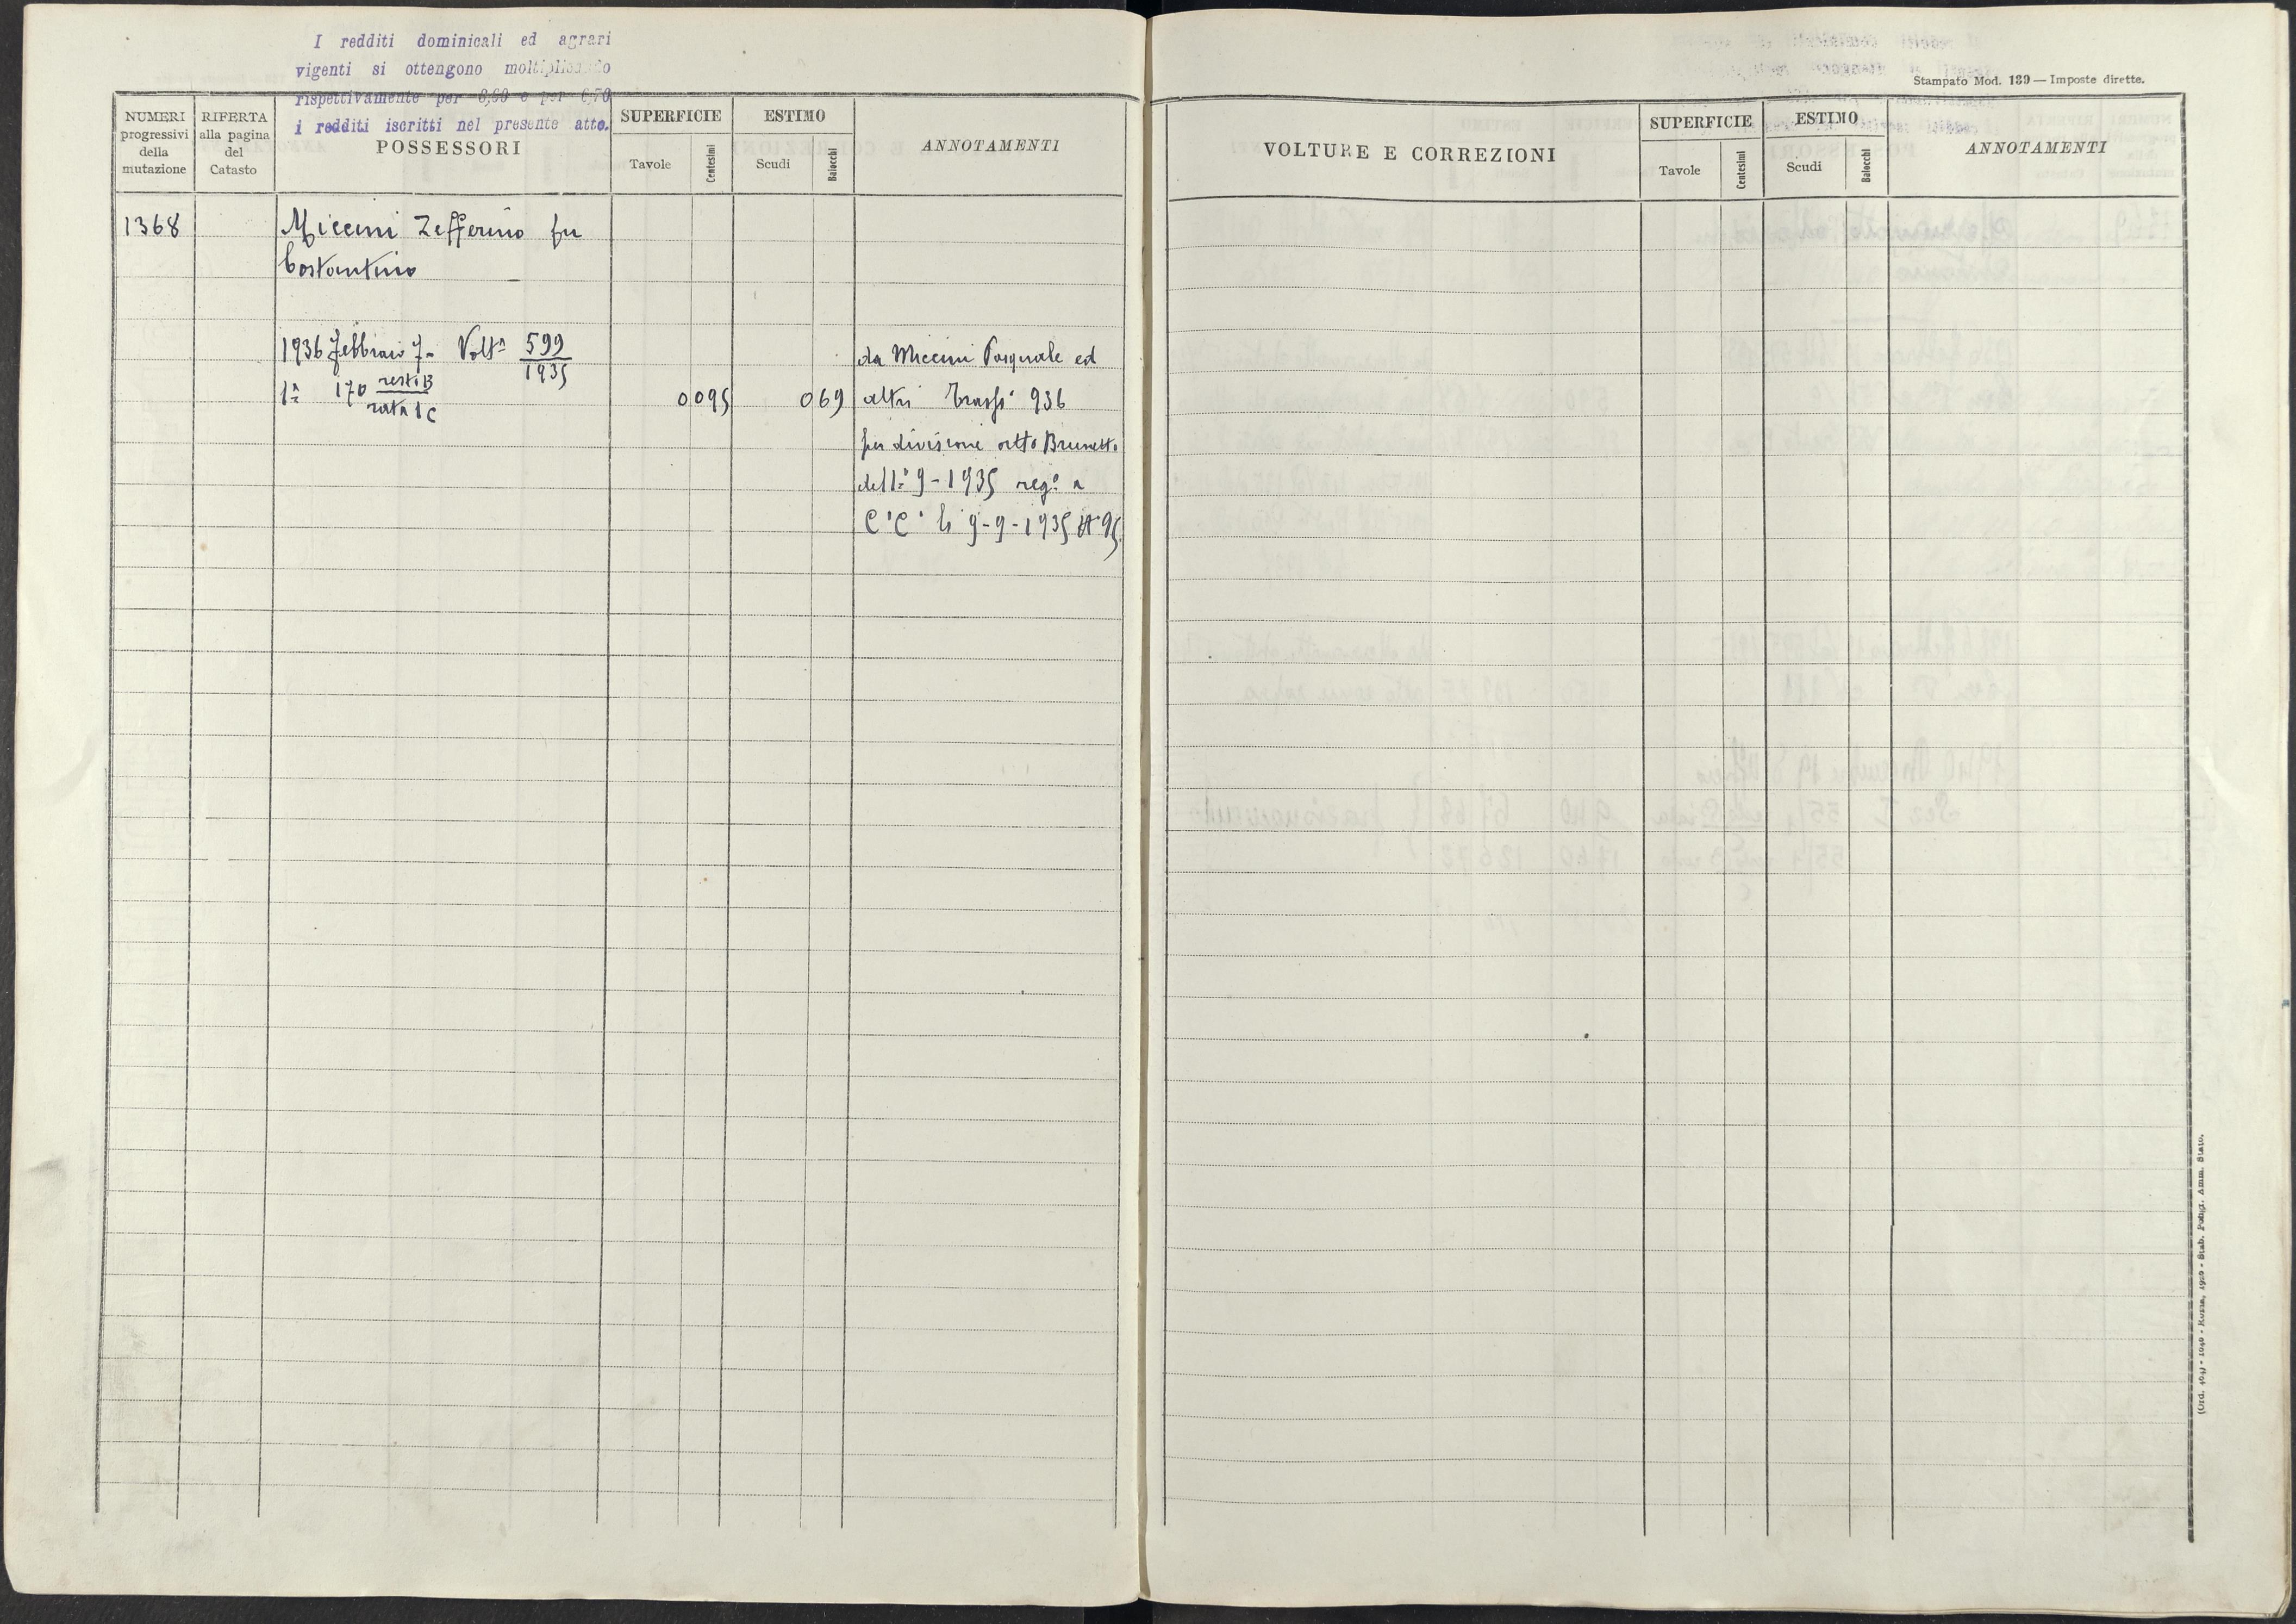 I redditi dominicali ed agrari
vigenti si ottengono moltiplicando
rispettivamente per 6,60 e per 6,70
i redditi iscritti nel presente atto.
NUMERI
progressivi
della
mutazione
RIFERTA
alla pagina
del
Catasto
POSSESSORI
SUPERFICIE
Tavole
Centesimi
ESTIMO
Scudi
Baiocchi
ANNOTAMENTI
1368
Miccini Zefferino fu
Costantino
1936 Febbraio 7 - Volta 599
1935
1ª 170 resti B
rata 1 C
0 095
0 69
da Miccini Pasquale ed
altri 936
per divisione atto Brunetti
dell' 1º 9 - 1935 reg.º a
C.C. li 9-9-1935 Nº 95
Stampato Mod. 139 — Imposte dirette.
VOLTURE E CORREZIONI
SUPERFICIE
Tavole
Centesimi
ESTIMO
Scudi
Baiocchi
ANNOTAMENTI
Roma, 1929 - Stab. Poligr. Amm. Stato.